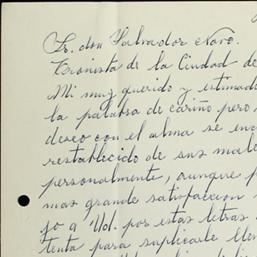 Sr. don Salvador Novo.
Cronista de la Ciudad de
Mi muy querido y estimado
la palabra de cariño pero
deseo con el alma se enc
restablecido de sus male
personalmente, aunque p
mas grande satisfaccion
jo a Ud. por estas letras
tenta para suplicarle